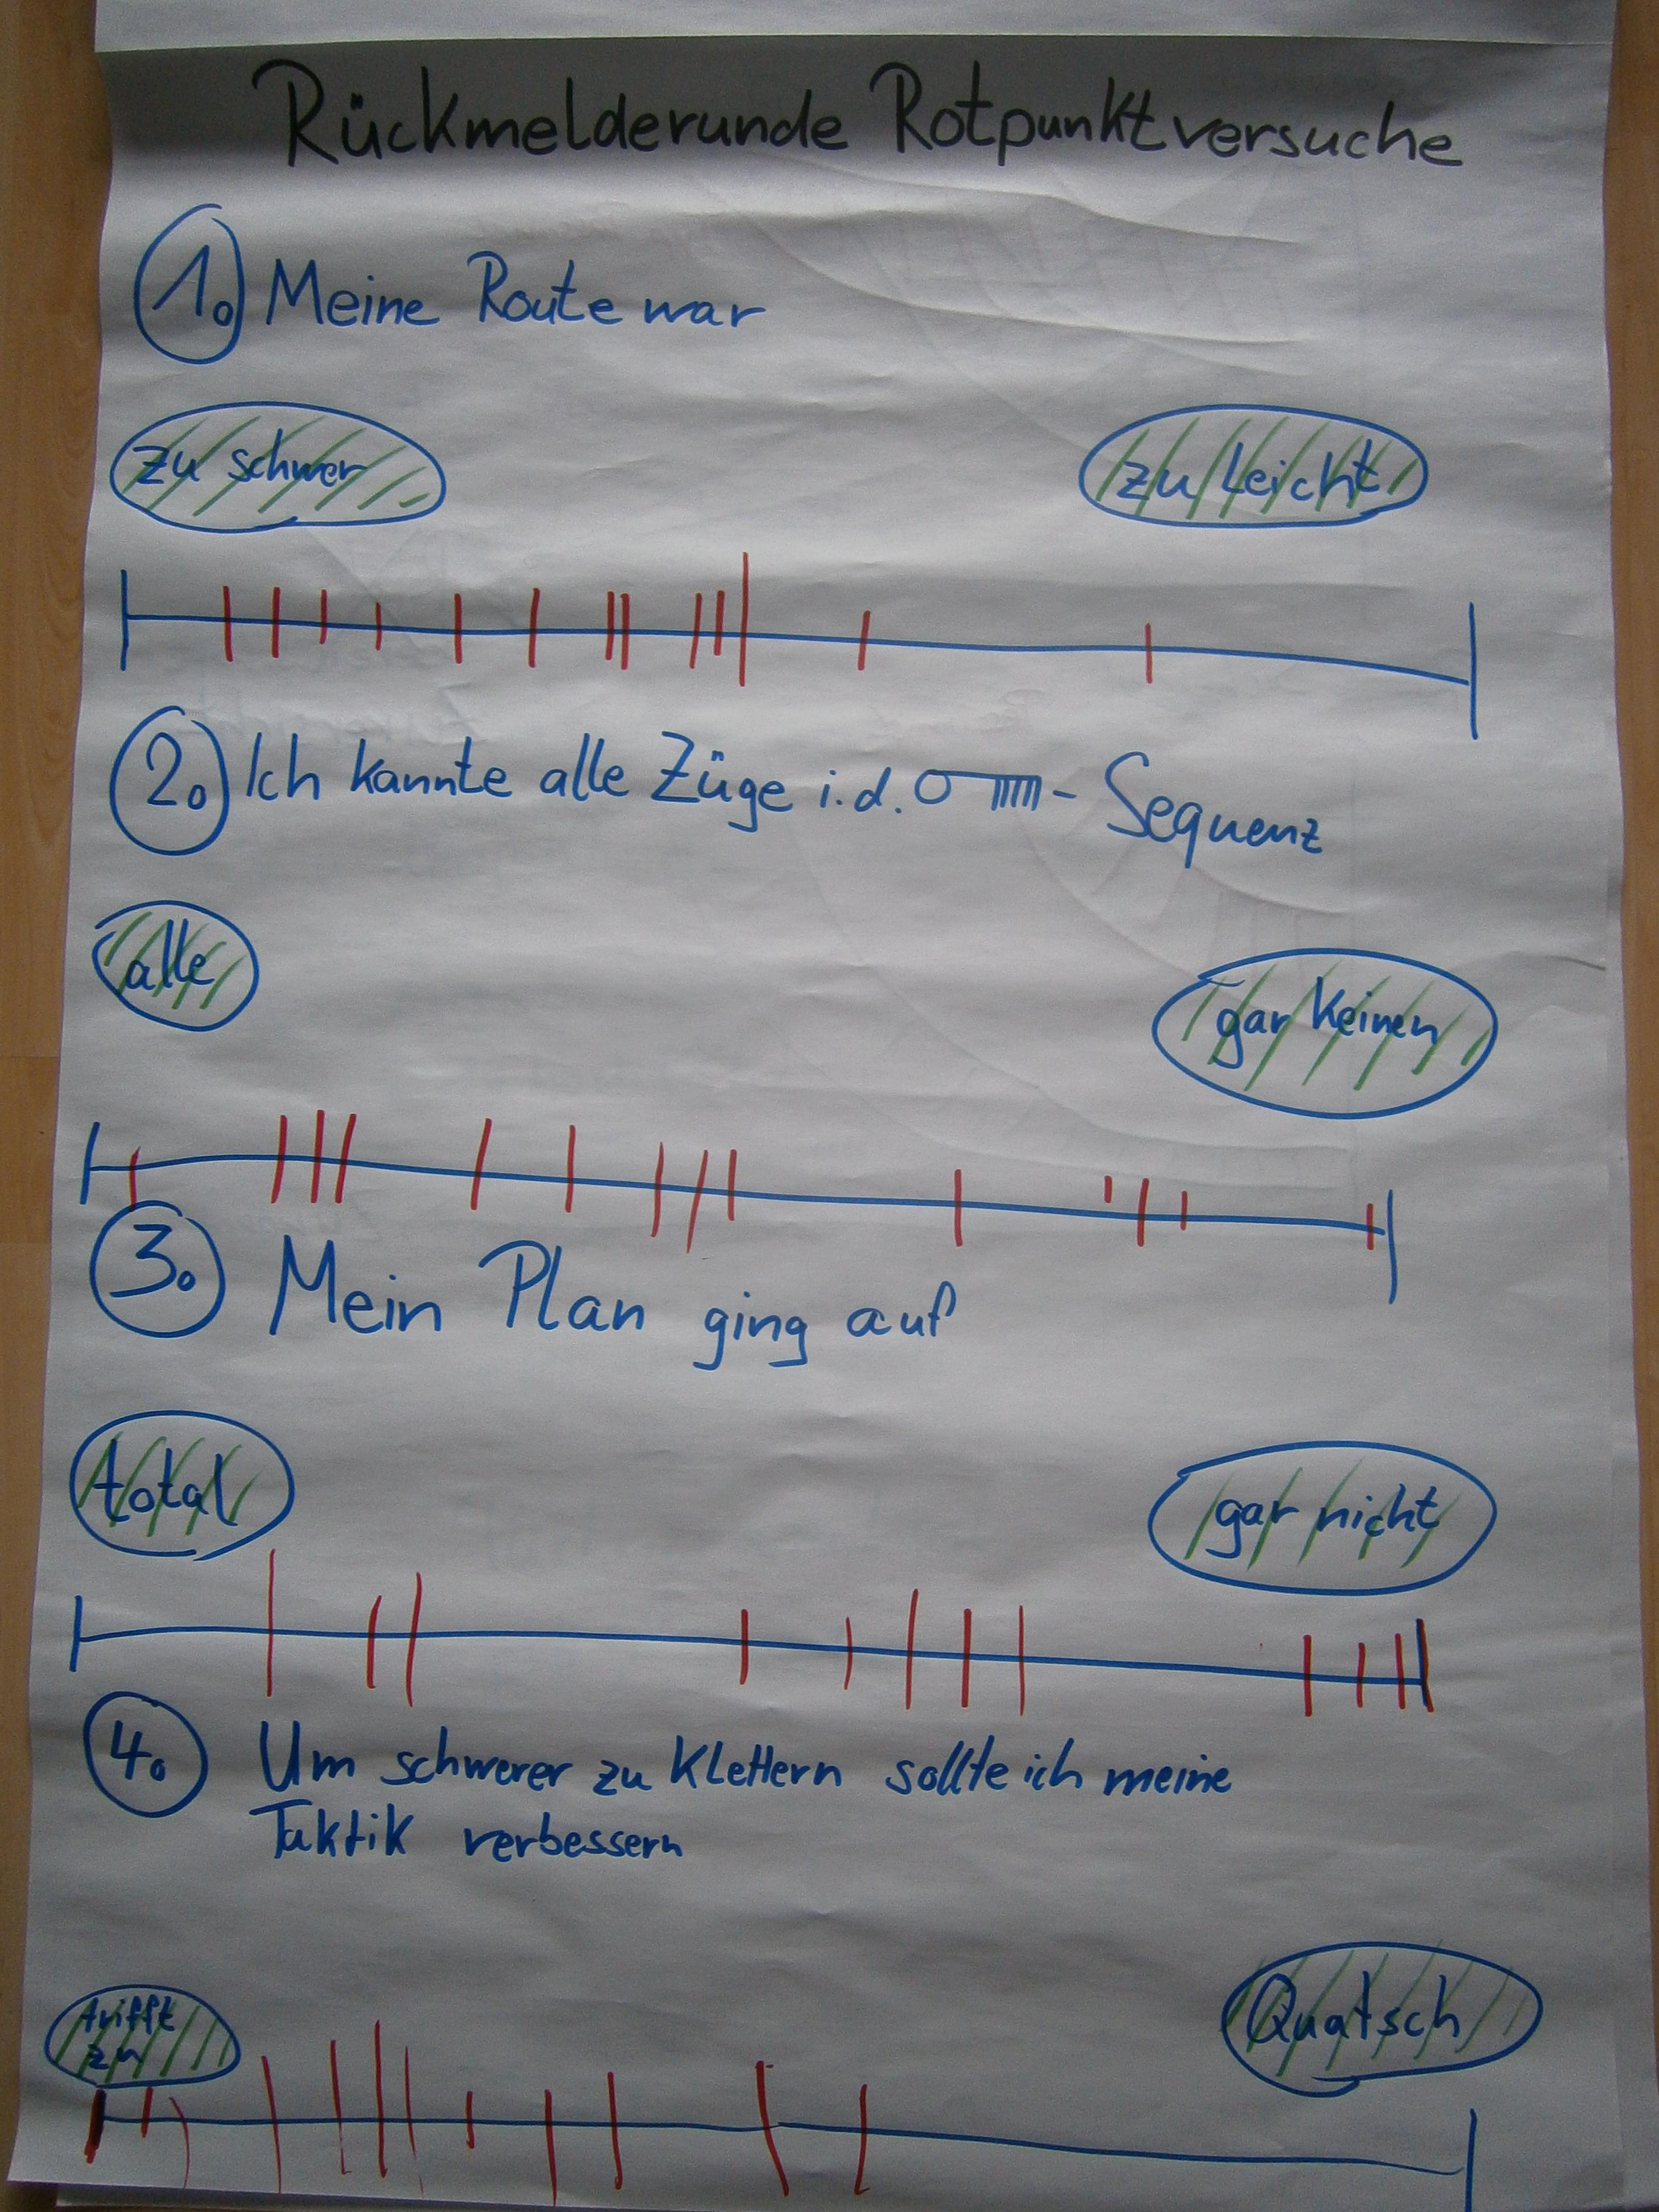 Rückmelderunde Rotpunktversuche
1. Meine Route war
zu schwer
zu leicht
2. Ich kannte alle Züge i.d. - Sequenz
alle
gar keinen
3. Mein Plan ging auf
total
gar nicht
4. Um schwerer zu klettern sollte ich meine
Taktik verbessern
trifft
zu
Quatsch